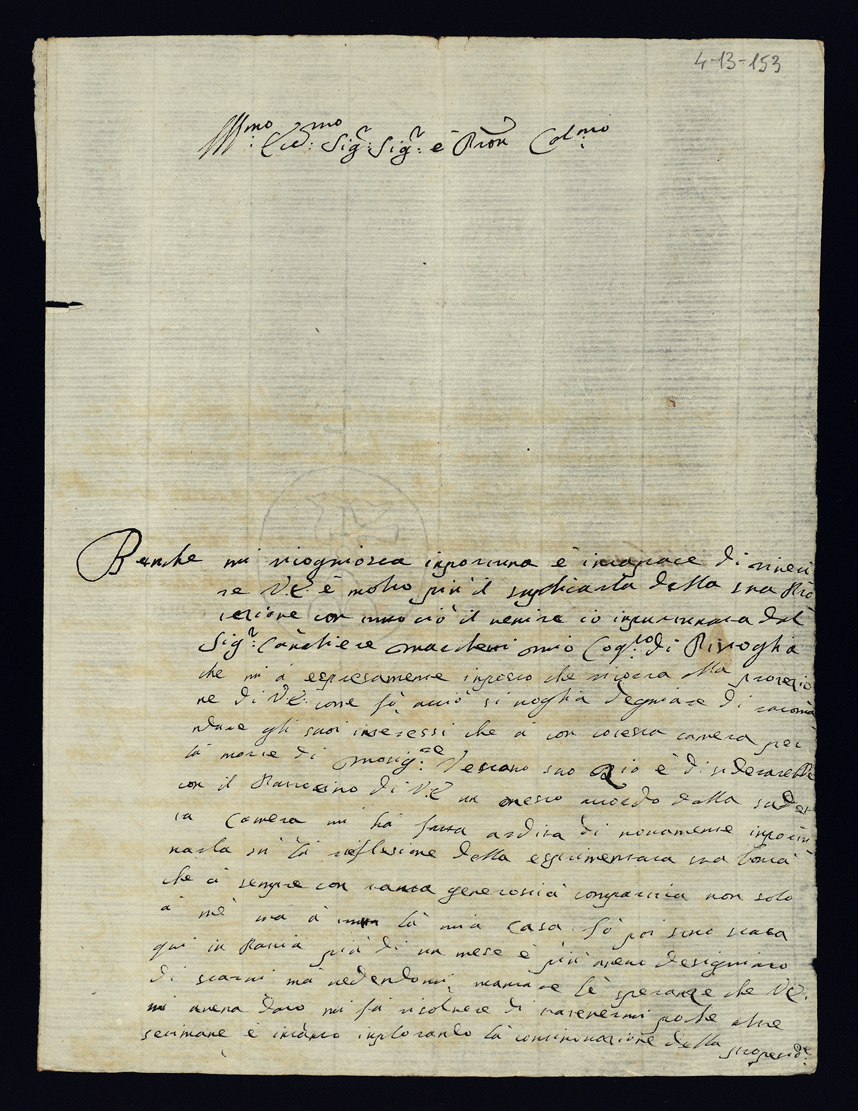 4-13-153
Ill:mo Ecc:mo Sig:r Sig:r e Pron Col:mo
Benche mi riccognosca inportuna è incapace di riveri
re VE: è molto più il suplicarla della sua Pro
tezione con tutto ciò il venire io inportunata dal
Sig:r Cavaliere mio Cog:to di Pistoglia
che mi à espresamente inposto che ricora alla protezio
ne di VE: come fò, acciò si voglia degniare di racoma
ndare gli suoi interessi che à con cotesta camera per
la morte di Mosig:re Vescovo suo Zio è disiderarebbe
con il Patrocino di VE un onesto acordo dalla sudet
ta Camera mi hà fatta ardita di novamente inportu
narla sù la riflesione della esprimentata sua bontà
che à senpre con tanta generosità conpatita non solo
à mè mà à tutta la mia Casa. Iò poi sono stata
qui in Pavia più di un mese è più avevo designiato
di starvi mà vedendomi mancare le speranze che VE:
mi aveva dato mi fà risolvere di tratenermi poche altre
setimane è intanto inplorando la continovazione della